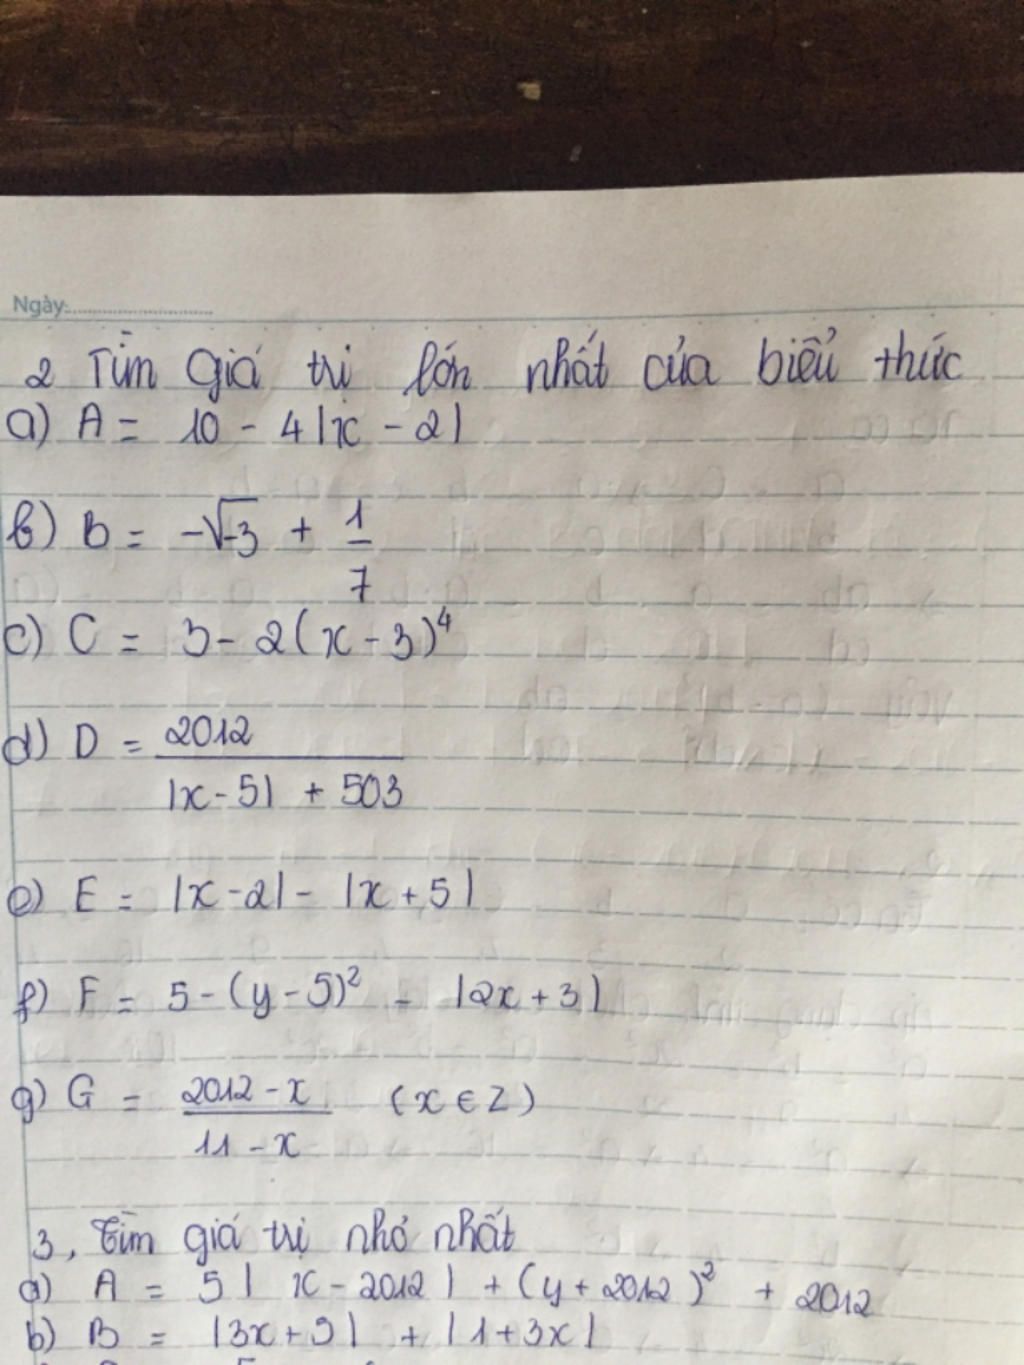 Ngày:
2 Tìm giá trị lớn nhất của biểu thức
a) A = 10 - 4|x - 2|
b) B = -√-3 + 1/7
c) C = 3 - 2(x - 3)⁴
d) D = 2012 / |x - 5| + 503
e) E = |x - 2| - |x + 5|
f) F = 5 - (y - 5)² - |2x + 3|
g) G = 2012 - x / 11 - x (x ∈ Z)
3, Tìm giá trị nhỏ nhất
a) A = 5| x - 2012| + (y + 2012)² + 2012
b) B = |3x + 9| + |1 + 3x|